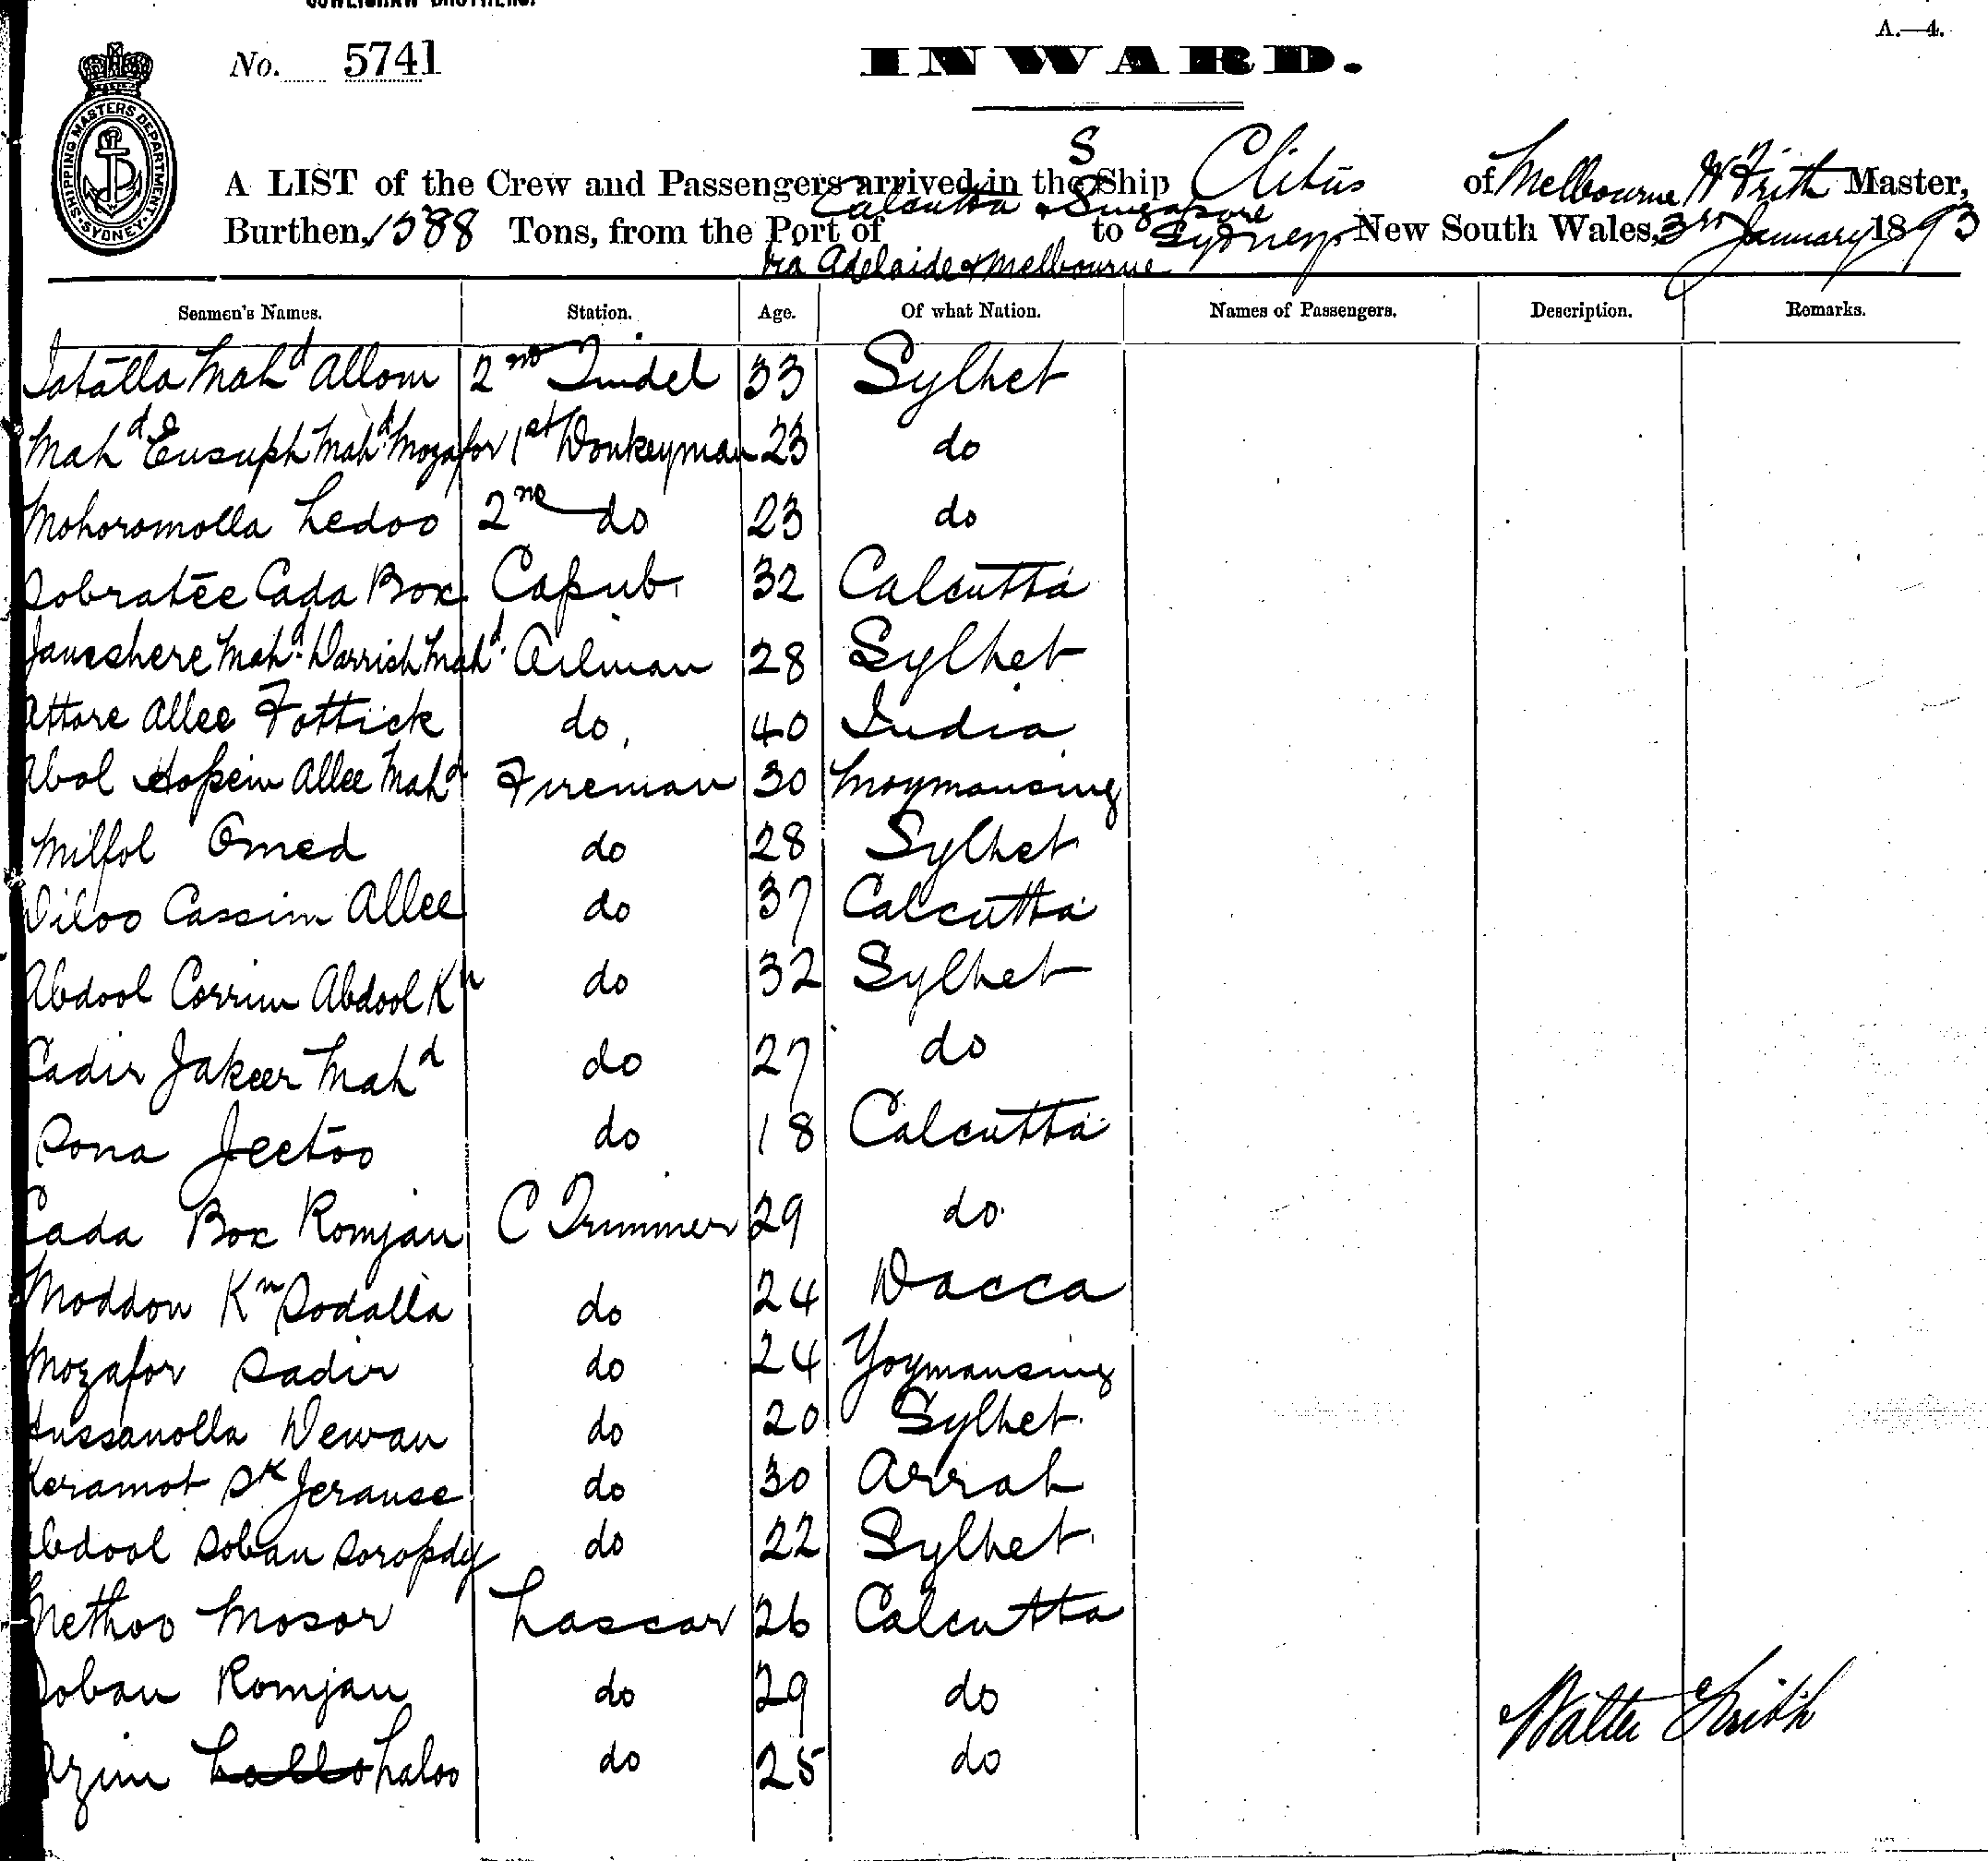 COWLISHAW BROTHERS.
A.—4.
No. 5741
INWARD.
SHIPPING MASTERS DEPARTMENT SYDNEY
A LIST of the Crew and Passengers arrived in the SS Ship Clitus of Melbourne W Frith Master,
Burthen, 1588 Tons, from the Port of Calcutta & Singapore to Sydney New South Wales, 3rd January 1893
via Adelaide & Melbourne
Seamen's Names. Station. Age. Of what Nation. Names of Passengers. Description. Remarks.
Jatalla Mahd Allom 2nd Tindel 33 Sylhet
Mahd Eusuph Mahd Mozafor 1st Donkeyman 23 do
Mohoromolla Ledoo 2nd do 23 do
Sobratee Cada Box 32 Calcutta
Janeshere Mahd Warrish Mahd Oilman 28 Sylhet
Attore Allee Fottick do 40 India
Abol Hossein Allee Mahd Fireman 30 Moymansing
Milfol Omed do 28 Sylhet
Diloo Cassim Allee do 37 Calcutta
Abdool Corrim Abdool Kn do 32 Sylhet
Cadir Jakeer Mahd do 27 do
Sona Jeetoo do 18 Calcutta
Cada Box Romjan C Trimmer 29 do
Moddon Kn Sodalla do 24 Dacca
Mozafor Sadir do 24 Yoymansing
Hussanolla Dewan do 20 Sylhet
Keramot Sk Jerause do 30 Arrah
Abdool Soban Soropdy do 22 Sylhet
Nethoo Mosor Lascar 26 Calcutta
Soban Romjan do 29 do
Azim Lallo Laloo do 25 do
Walter Frith